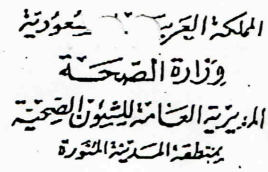 المملكة العربية السعودية
وزارة الصحة
المديرية العامة للشئون الصحية
بمنطقة المدينة المنورة